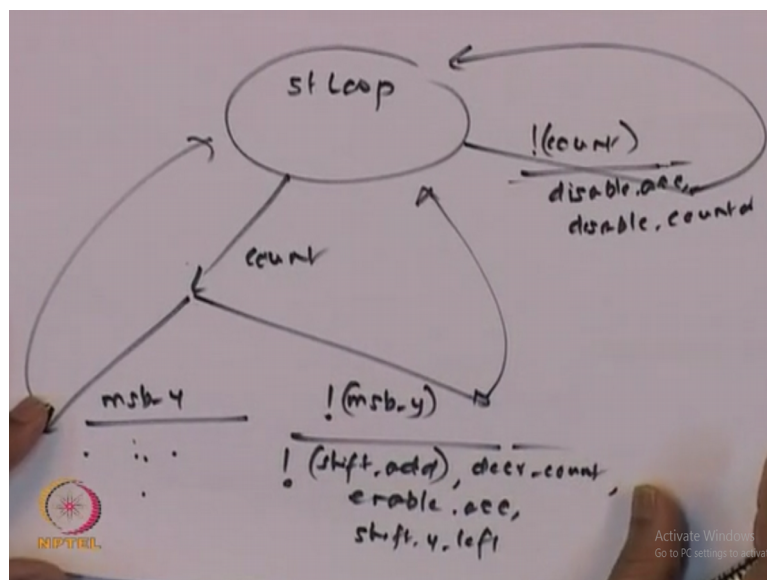 st Loop
!(count)
disable.acc,
disable.countd
count
msb-y
!(msb-y)
!(shift.add), decr.count,
enable.acc,
shift.y.left
NPTEL
Activate Windows
Go to PC settings to activat